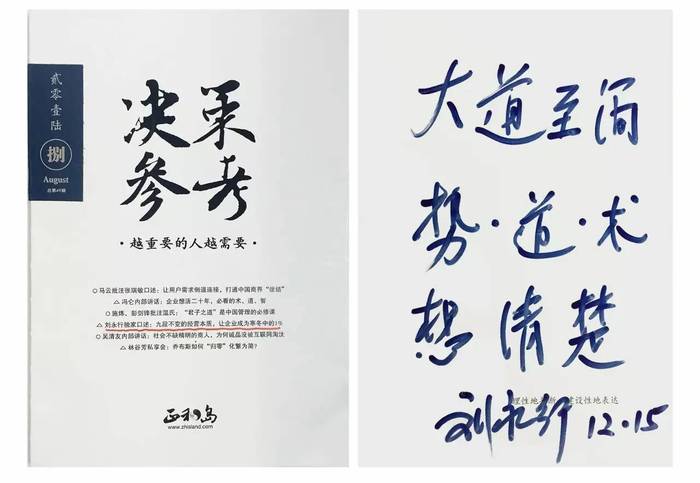 贰零壹陆
捌
August
总第49期
决策
参考
·越重要的人越需要·
○马云批注张瑞敏口述：让用户需求倒逼连接，打通中国商界“徐结”
△冯仑内部讲话：企业想活二十年，必看的术、道、智
○施炜、彭剑锋批注温氏：“君子之道”是中国管理的必修课
△刘永行独家口述：九段不变的经营本质，让企业成为寒冬中的1%
○吴清友内部讲话：社会不缺精明的商人，为何诚品没被互联网淘汰
△林谷芳私享会：乔布斯如何“归零”化繁为简？
正和岛
www.zhisland.com
大道至简
势·道·术
想清楚
理性地 断 建设性地表达
刘永行 12.15